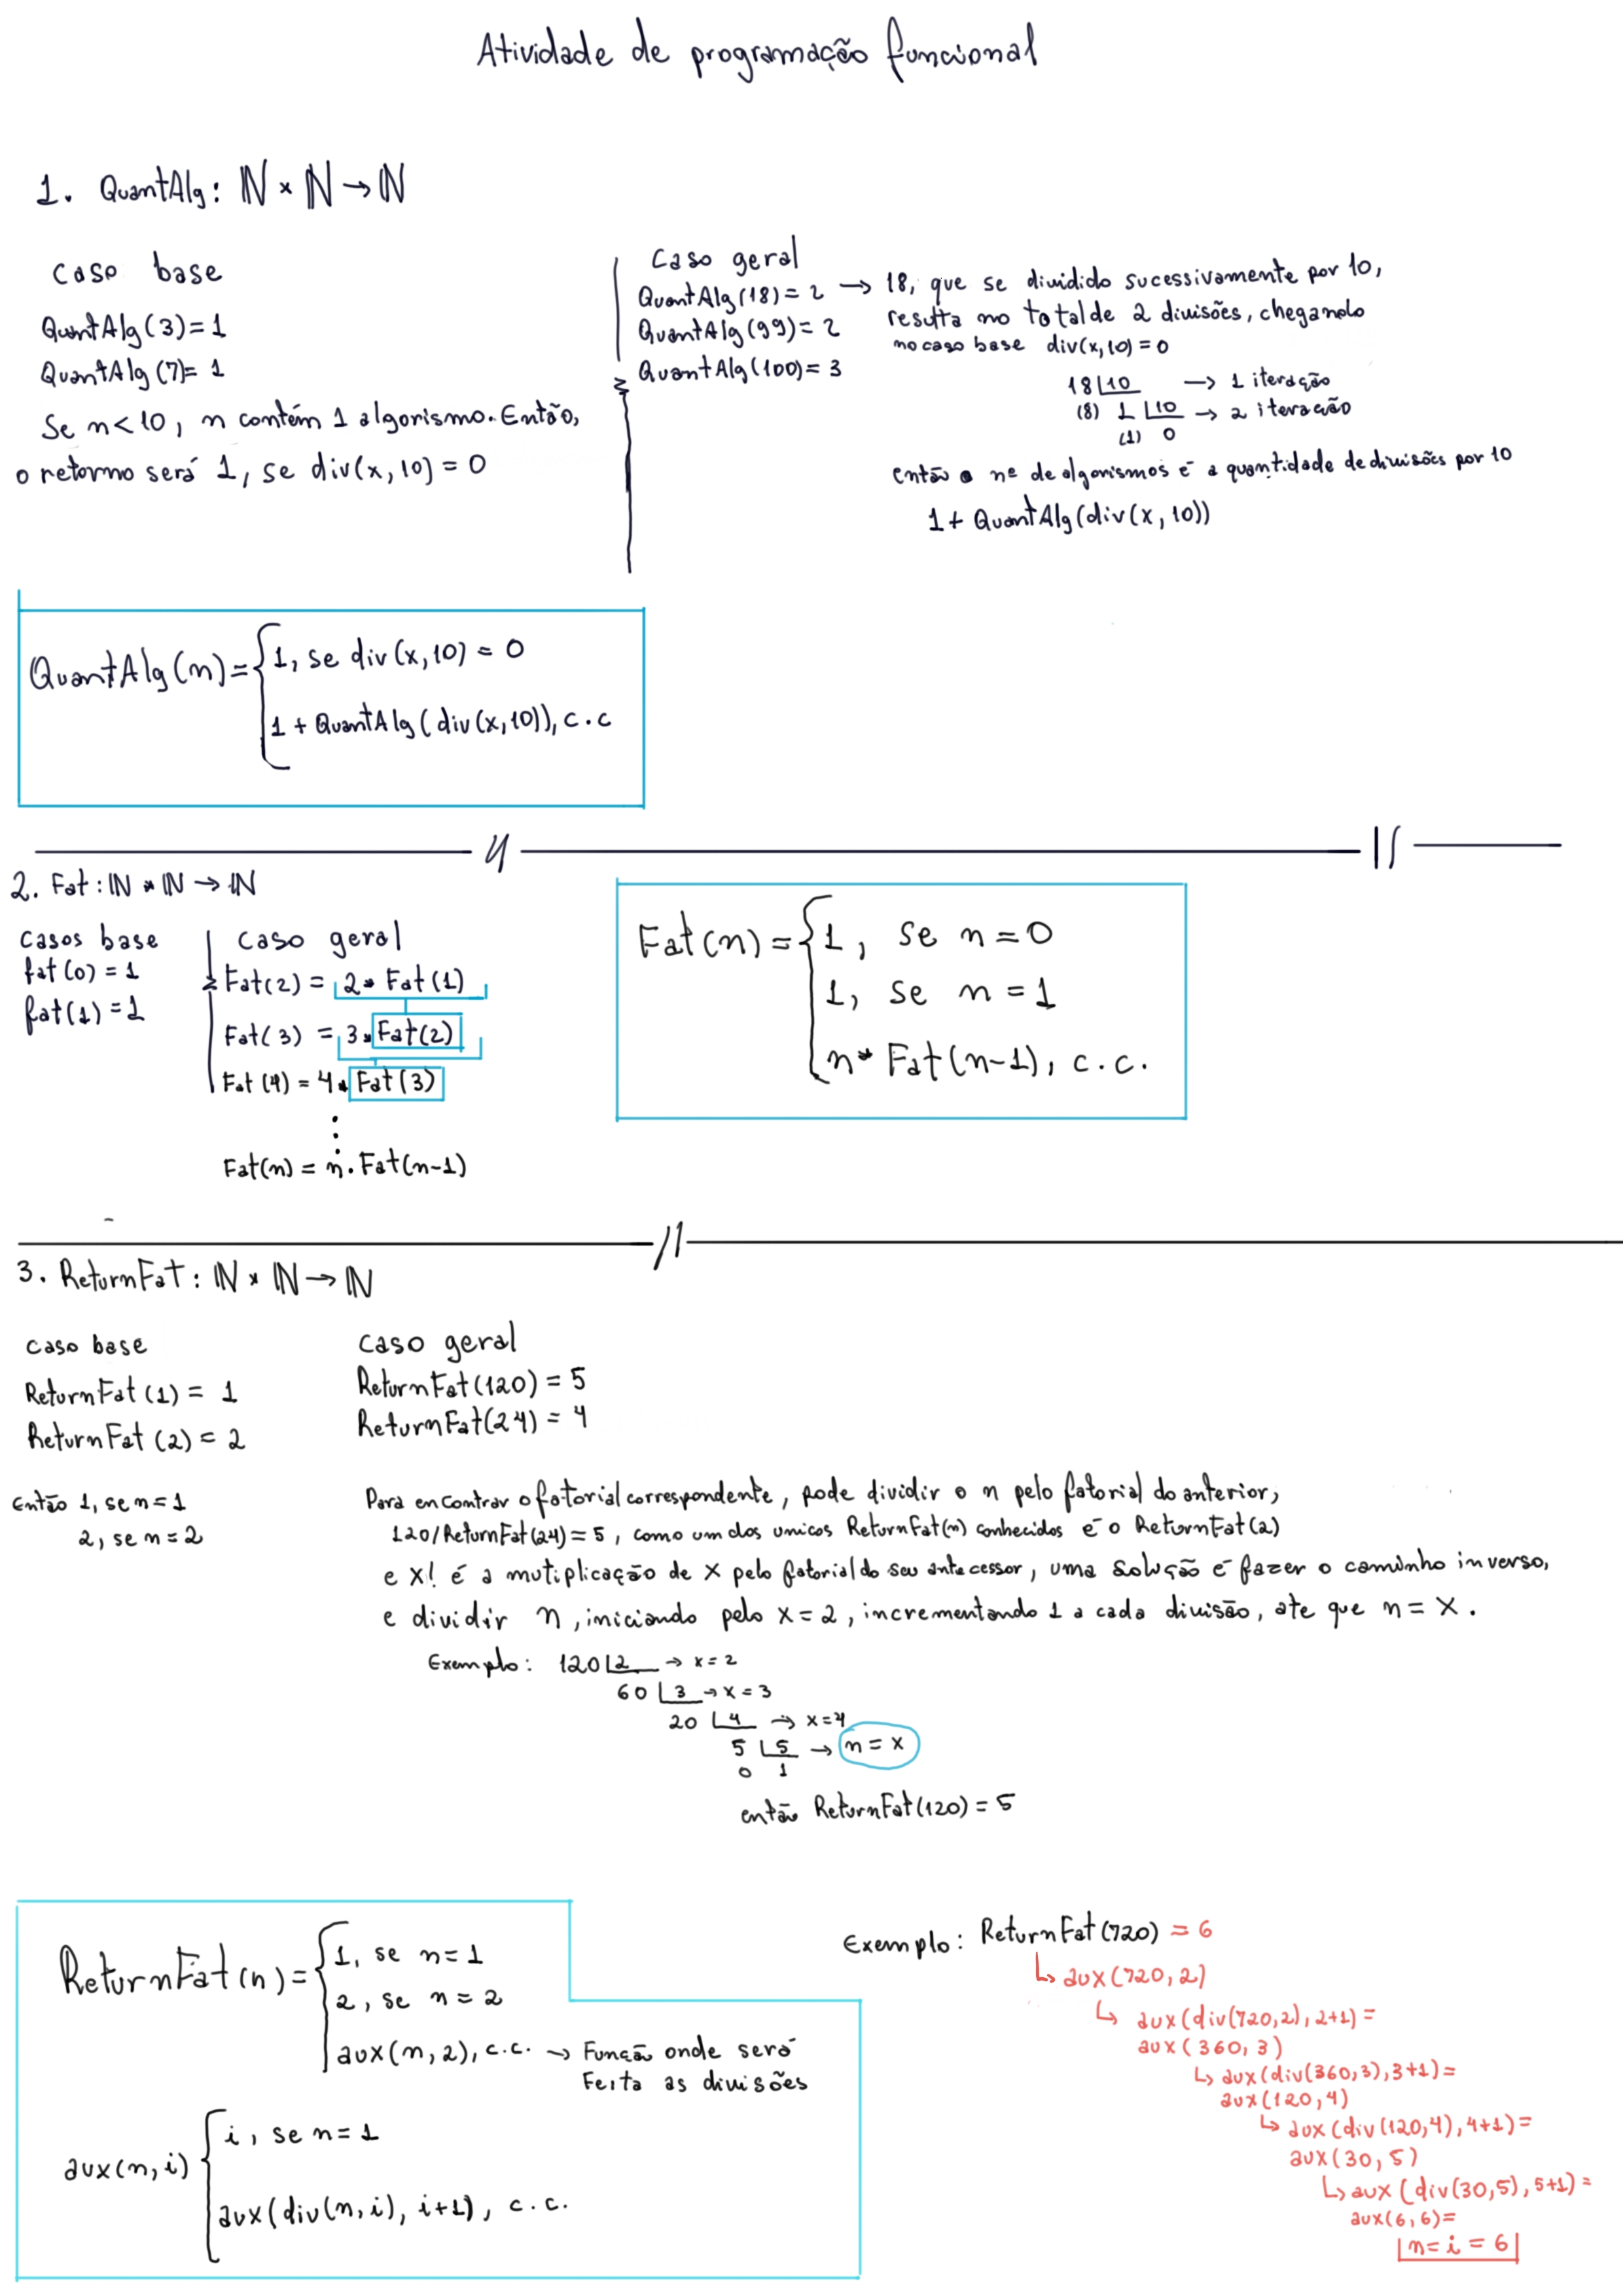 Atividade de programação funcional
1. QuantAlg: ℕ × ℕ → ℕ
caso base
QuantAlg(3)=1
QuantAlg(7)=1
Se n<10, n contém 1 algorismo. Então,
o retorno será 1, se div(x,10) = 0
Caso geral
QuantAlg(18)=2 → 18, que se dividido sucessivamente por 10,
QuantAlg(99)=2 resulta no total de 2 divisões, chegando
no caso base div(x,10)=0
QuantAlg(100)=3
18 10 → 1 iteração
(8) 1 10 → 2 iteração
(1) 0
então o nº de algorismos é a quantidade de divisões por 10
1+ QuantAlg(div(x,10))
QuantAlg(n)={ 1, se div(x,10) = 0
1 + QuantAlg(div(x,10)), c.c
2. Fat: ℕ * ℕ → ℕ
casos base
fat(0)=1
fat(1)=1
caso geral
Fat(2) = 2* Fat(1)
Fat(3) = 3*Fat(2)
Fat(4) = 4*Fat(3)
⋮
Fat(n) = n.Fat(n-1)
Fat(n)={ 1, se n=0
1, se n=1
n* Fat(n-1), c.c.
3. ReturnFat: ℕ × ℕ → ℕ
caso base
ReturnFat(1) = 1
ReturnFat(2) = 2
Então 1, se n=1
2, se n=2
caso geral
ReturnFat(120) = 5
ReturnFat(24) = 4
Para encontrar o fatorial correspondente, pode dividir o n pelo fatorial do anterior,
120/ReturnFat(24)=5, como um dos unicos ReturnFat(n) conhecidos é o ReturnFat(2)
e x! é a mutiplicação de x pelo fatorial do seu antecessor, uma solução é fazer o caminho inverso,
e dividir n, iniciando pelo x=2, incrementando 1 a cada divisão, ate que n=x.
Exemplo: 120 2 → x=2
60 3 → x=3
20 4 → x=4
5 5 → n=x
0 1
então ReturnFat(120)=5
ReturnFat(n)={ 1, se n=1
2, se n=2
aux(n,2), c.c. → Função onde será
Feita as divisões
aux(n,i) { i, se n=1
aux(div(n,i), i+1), c.c.
Exemplo: ReturnFat(720) = 6
↳ aux(720,2)
↳ aux(div(720,2),2+1)=
aux(360,3)
↳ aux(div(360,3),3+1)=
aux(120,4)
↳ aux(div(120,4),4+1)=
aux(30,5)
↳ aux(div(30,5),5+1)=
aux(6,6)=
n=i=6